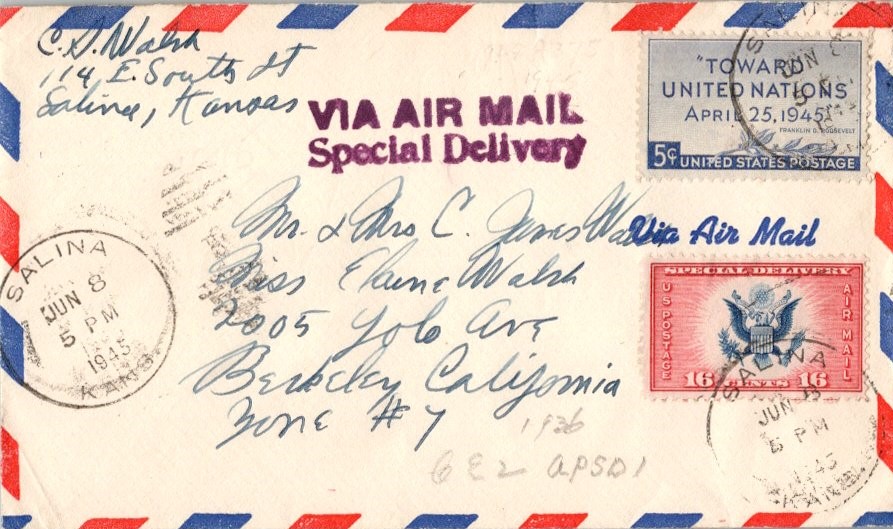 C. S. Walsh
114 E. South St
Salina, Kansas
VIA AIR MAIL
Special Delivery
"TOWARD
UNITED NATIONS"
APRIL 25, 1945
FRANKLIN D. ROOSEVELT
5¢ UNITED STATES POSTAGE
SALINA
JUN 8
5 PM
1945
KANS.
Mr. & Mrs C. James
Via Air Mail
Miss Elaine Walsh
2005 Yolo Ave
Berkeley California
Zone #7
SPECIAL DELIVERY
US POSTAGE
AIR MAIL
16 CENTS 16
SALINA
JUN 8
5 PM
1945
SALINA
JUN 8
5 PM
1936
CE2 APSD1